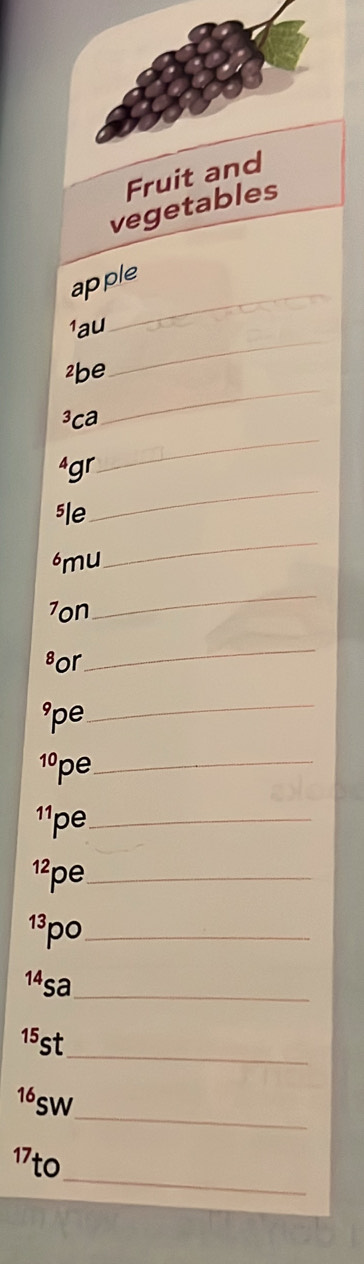 Fruit and
vegetables
apple
1au
2be
3ca
4gr
5le
6mu
7on
8or
9pe
10pe
11pe
12pe
13po
14sa
15st
16sw
17to